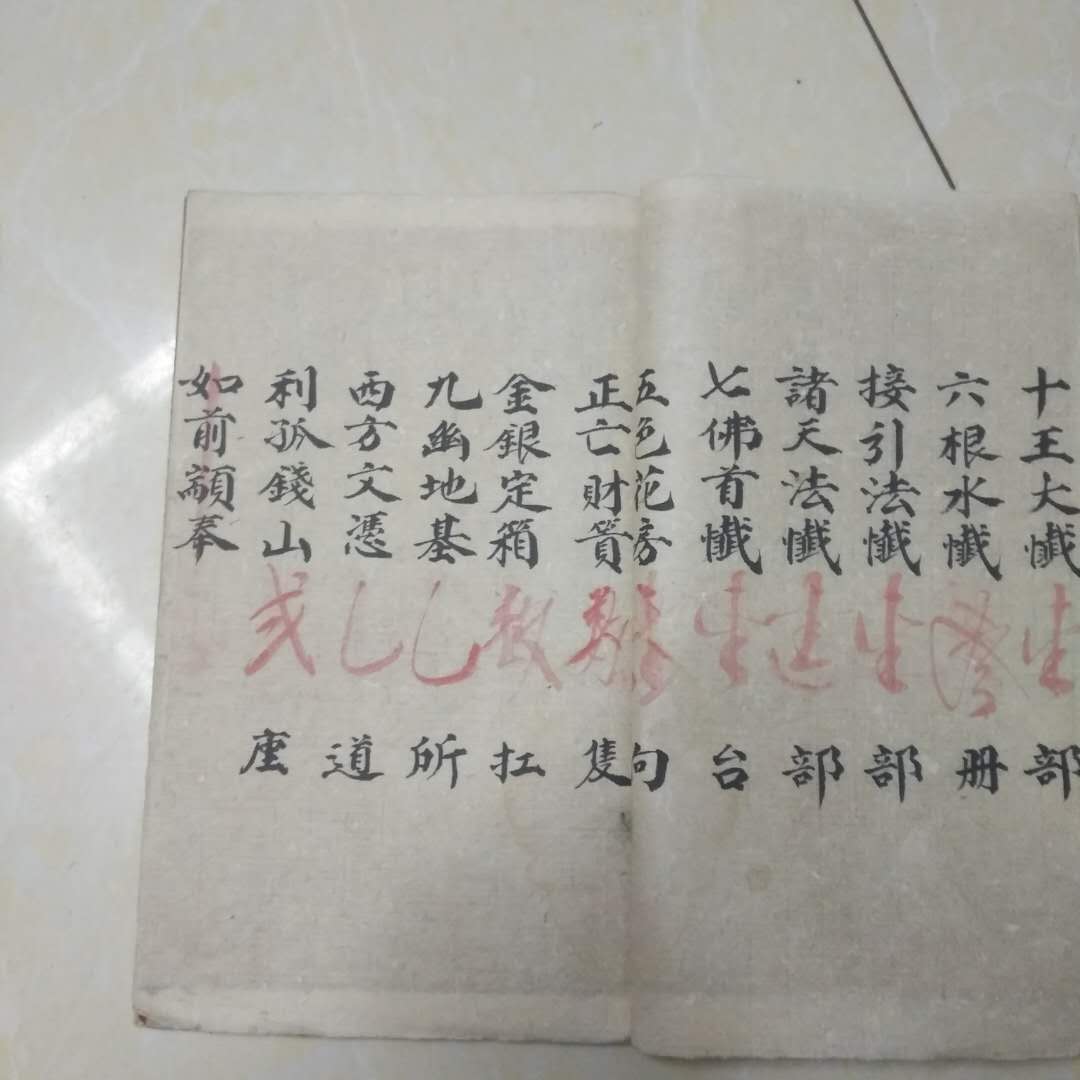 十王大懺 部
六根水懺 册
接引法懺 部
諸天法懺 部
七佛首懺 台
五色花房 句
正亡財篢 隻
金銀定箱 扛
九幽地基 乙 所
西方文憑 乙 道
利孤錢山 弍 座
如前顓奉